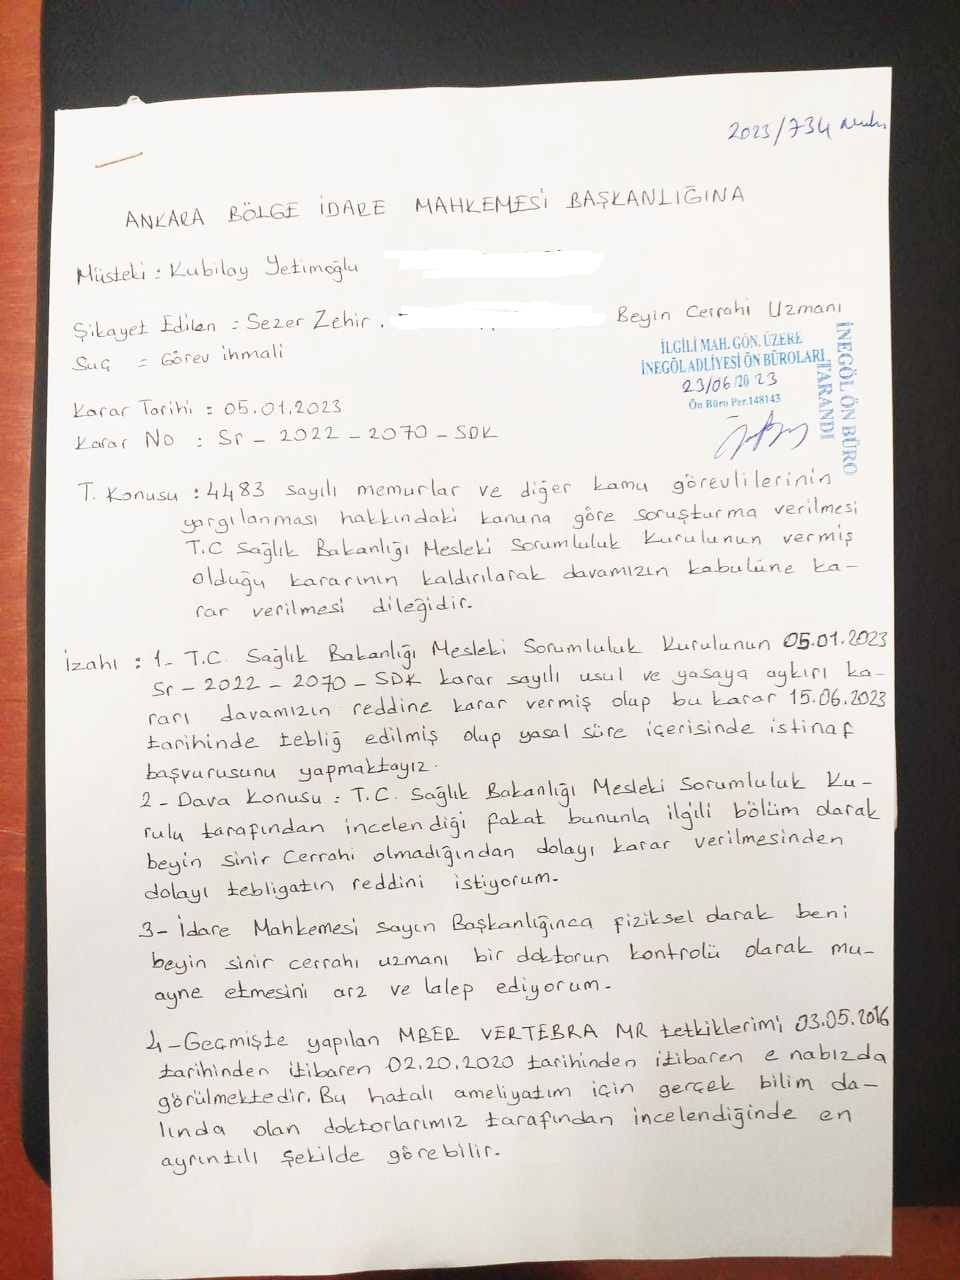 2023/734 Muh.
ANKARA BÖLGE İDARE MAHKEMESİ BAŞKANLIĞINA
Müşteki : Kubilay Yetimoğlu
Şikayet Edilen : Sezer Zehir. Beyin Cerrahi Uzmanı
Suç = Görev ihmali
İLGİLİ MAH. GÖN. ÜZERE
İNEGÖL ADLİYESİ ÖN BÜROLARI
23/06/2023
Ön Büro Per.148143
İNEGÖL ÖN BÜRO
TARANDI
Karar Tarihi : 05.01.2023
Karar No : Sr - 2022 - 2070 - SDK
T. Konusu : 4483 sayılı memurlar ve diğer kamu görevlilerinin
yargılanması hakkındaki kanuna göre soruşturma verilmesi
T.C Sağlık Bakanlığı Mesleki Sorumluluk Kurulunun vermiş
olduğu kararının kaldırılarak davamızın kabulüne ka-
rar verilmesi dileğidir.
İzahı : 1- T.C. Sağlık Bakanlığı Mesleki Sorumluluk Kurulunun 05.01.2023
Sr - 2022 - 2070 - SDK karar sayılı usul ve yasaya aykırı ka-
rarı davamızın reddine karar vermiş olup bu karar 15.06.2023
tarihinde tebliğ edilmiş olup yasal süre içerisinde istinaf
başvurusunu yapmaktayız.
2 - Dava Konusu : T.C. Sağlık Bakanlığı Mesleki Sorumluluk Ku-
rulu tarafından incelendiği fakat bununla ilgili bölüm olarak
beyin sinir Cerrahi olmadığından dolayı karar verilmesinden
dolayı tebligatın reddini istiyorum.
3- İdare Mahkemesi sayın Başkanlığınca fiziksel olarak beni
beyin sinir cerrahı uzmanı bir doktorun kontrolü olarak mu-
ayne etmesini arz ve talep ediyorum.
4 - Geçmişte yapılan MBER VERTEBRA MR tetkiklerimi 03.05.2016
tarihinden itibaren 02.20.2020 tarihinden itibaren e nabızda
görülmektedir. Bu hatalı ameliyatım için gerçek bilim da-
lında olan doktorlarımız tarafından incelendiğinde en
ayrıntılı şekilde görebilir.